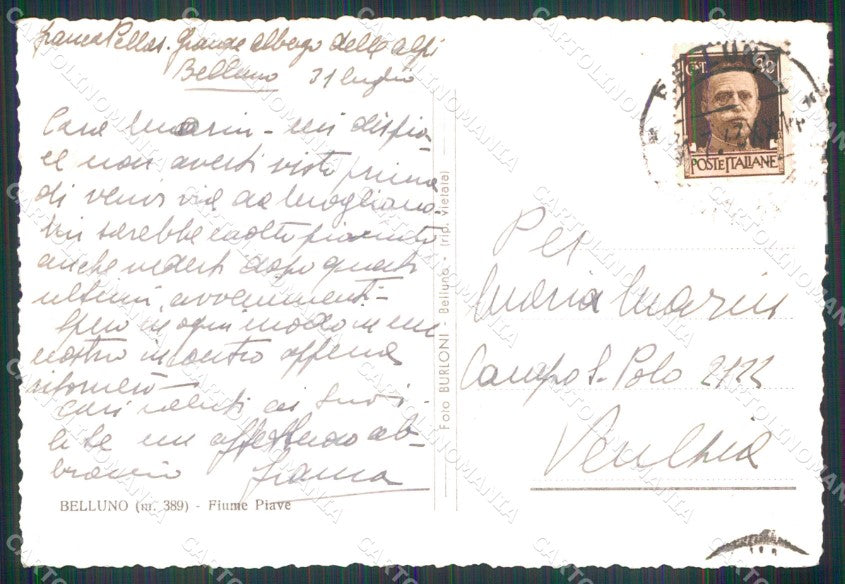 Franca Pellas. Grande albergo delle alpi
Belluno 31 luglio
Cara Marin - mi dispia-
ce non averti visto prima
di venir via da Mogliano.
Mi sarebbe molto piaciuto
anche vederti dopo questi
ultimi avvenimenti -
Spero in ogni modo in un
nostro incontro appena
ritornerò -
Cari saluti ai tuoi -
a te un affettuoso ab-
braccio Franca
BELLUNO (m. 389) - Fiume Piave
Foto BURLONI - Belluno - (rip. vietata)
BELLUNO
CT. 30
POSTE ITALIANE
Per
Maria Marin
Campo S. Polo 2122
Venezia
CARTOLINOMANIA